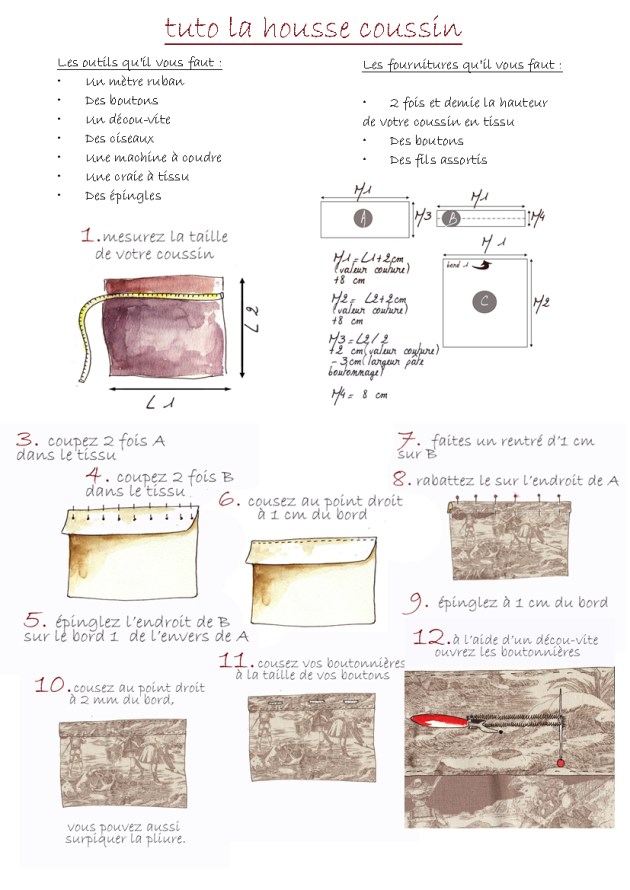 tuto la housse coussin
Les outils qu'il vous faut :
• Un mètre ruban
• Des boutons
• Un décou-vite
• Des ciseaux
• Une machine à coudre
• Une craie à tissu
• Des épingles
Les fournitures qu'il vous faut :
• 2 fois et demie la hauteur
de votre coussin en tissu
• Des boutons
• Des fils assortis
M1
A
M3
M1
B
M4
M1
bord 1
C
M2
M1 = L1+2cm
(valeur couture)
+8 cm
M2 = L2+2cm
(valeur couture)
+8 cm
M3 = L2/2
+2 cm (valeur couture)
- 3cm (largeur pate
boutonnage)
M4 = 8 cm
1. mesurez la taille
de votre coussin
L2
L1
3. coupez 2 fois A
dans le tissu
4. coupez 2 fois B
dans le tissu
5. épinglez l'endroit de B
sur le bord 1 de l'envers de A
6. cousez au point droit
à 1 cm du bord
7. faites un rentré d'1 cm
sur B
8. rabattez le sur l'endroit de A
9. épinglez à 1 cm du bord
10. cousez au point droit
à 2 mm du bord,
vous pouvez aussi
surpiquer la pliure.
11. cousez vos boutonnières
à la taille de vos boutons
12. à l'aide d'un décou-vite
ouvrez les boutonnières